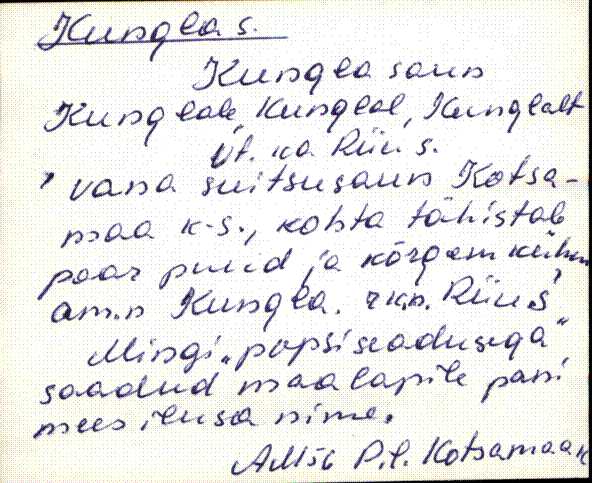 Kungla s.
Kungla saun
Kunglale, Kunglal, Kunglalt
Vt. ka Riiu s.
vana suitsusaun Kotsa-
maa k-s., kohta tähistab
paar puud ja kõrgem kühm
am.n Kungla. rkn. Riiu s
Mingi „popsiseadusega"
saadud maalapile pani
mees ilusa nime.
AM56 P.l. Kotsamaa k